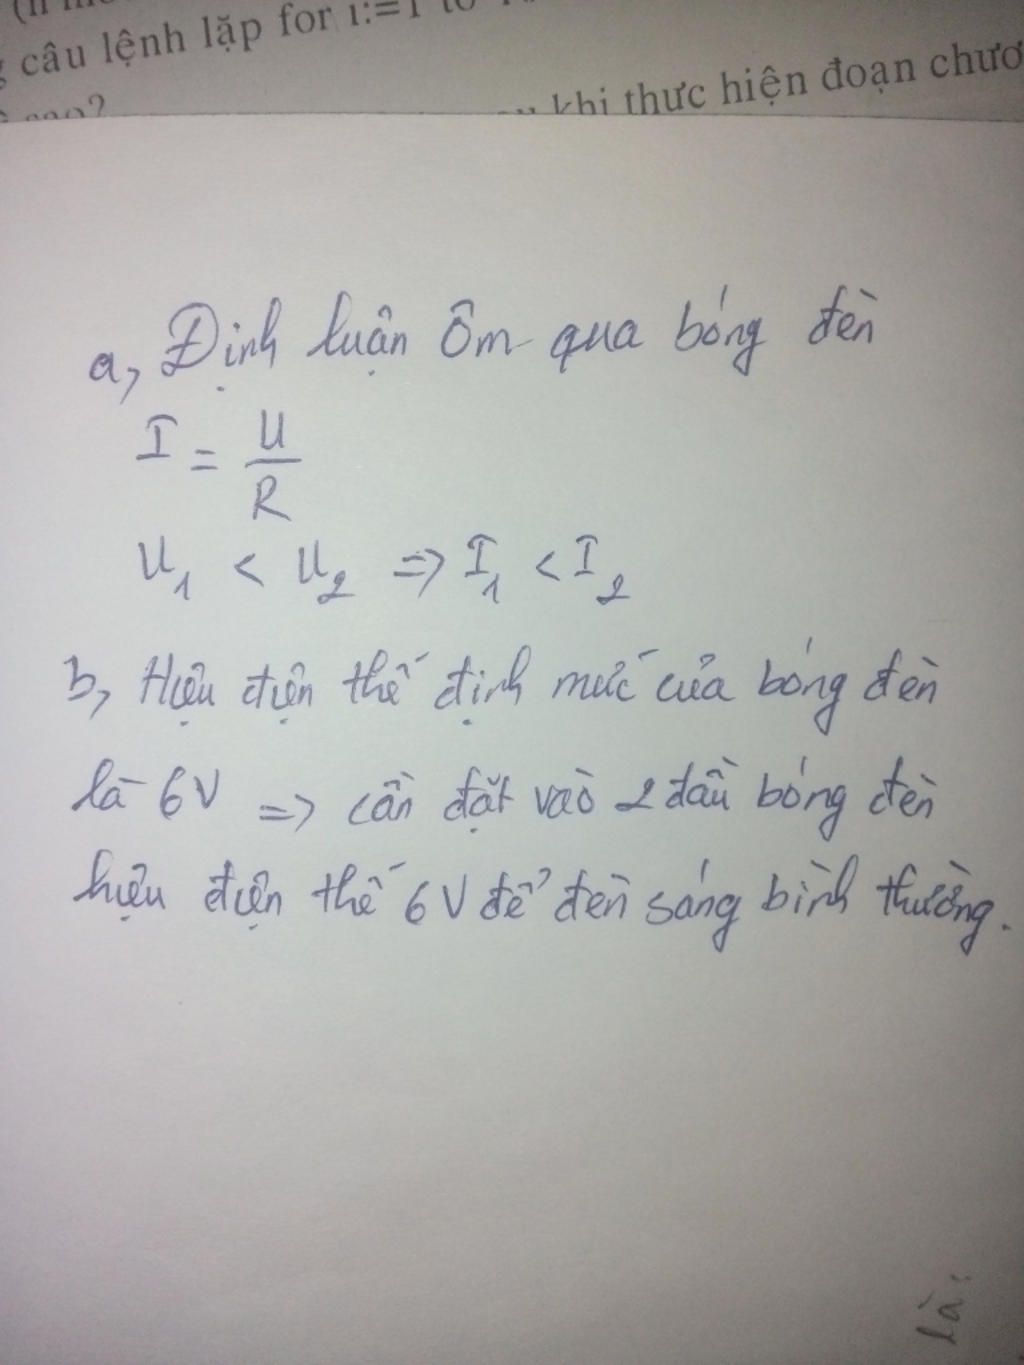 câu lệnh lặp for i:=1 to
khi thực hiện đoạn chươ
a, Định luận Ôm qua bóng đèn
I = U/R
U1 < U2 => I1 < I2
b, Hiệu điện thế định mức của bóng đèn
là 6V => cần đặt vào 2 đầu bóng đèn
hiệu điện thế 6V để đèn sáng bình thường.
là: